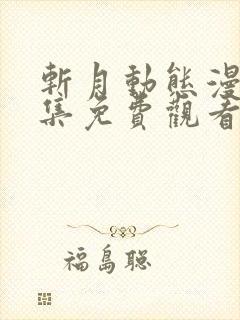 斬月動態漫
集免費觀看
福島聰